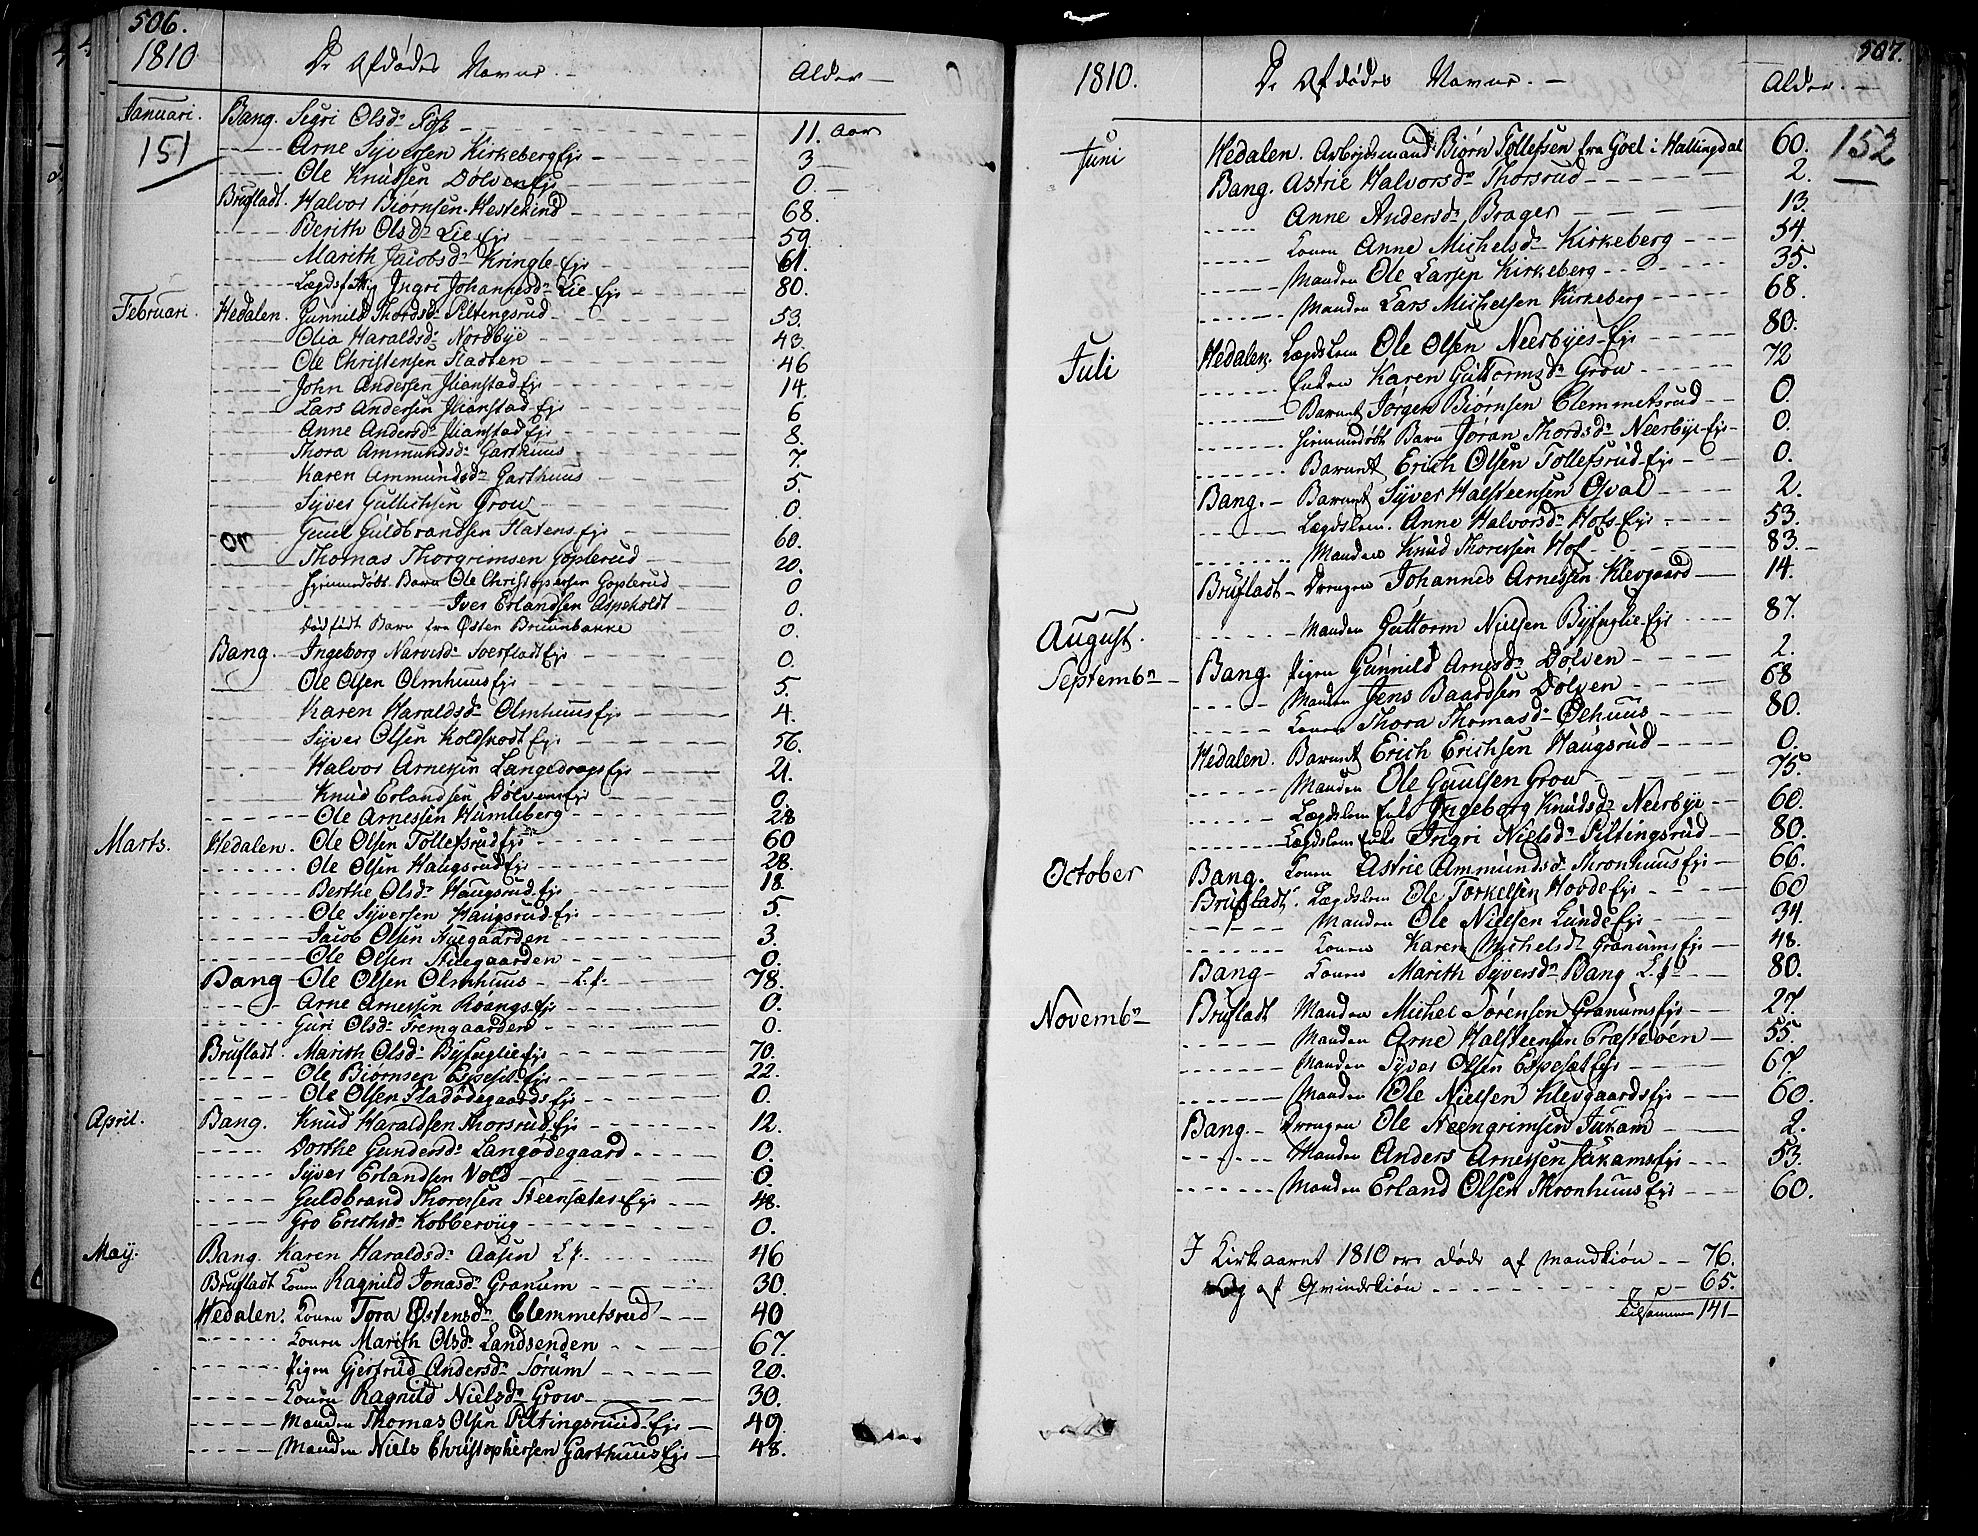 506.
1810 De Afdødes Navne. - Alder -
Januari. Bang. Sigri Olsd: Foss 11. Aar
151 Arne Syversen KirkebergEje 3
Ole Knudsen DølvenEje 0.
Brufladt. Halvor Biørnsen Hestekind 68.
Berith Olsd: Lie Eje 59
Marith Jacobsd: Kringle Eje 61.
Ingri Johannesd: Lie Eje 80.
Februari. Hedalen. Gunnild Thordsd: Piltengsrud 53.
Olia Haraldsd: Nordbye 43.
Ole Christensen 46
John Andersen Jlianstad Eje 14.
Lars Andersen Jlianstad Eje 6
Anne Andersd: Jlianstad Eje 8.
Thora Ammundsd: Garthuus 7.
Karen Ammundsd: Garthuus 5.
Syver Gullichsen Grow 0.
Guldbrandsen Eje 60.
Thomas Thorgrimsen Goplerud 20.
Hiemmedøbt Barn Ole Christophersen Goplerud 0
Iver Erlandsen Aspeholdt 0.
Dødfødt Barn fra Østen Bruunbakke 0.
Bang. Ingeborg Narvesd: Eje 0.
Ole Olsen OlmhuusEje 5.
Karen Haraldsd: OlmhuusEje 4.
Syver Olsen Eje 56.
Halvor Arnesen LangedragsEje 21.
Knud Erlandsen DølvenEje 0.
Ole Arnesen Humleberg 28
Marts. Hedalen. Ole Olsen TollefsrudEje 60
Ole Olsen HaugsrudEje 28.
Berthe Olsd: Haugsrud Eje 18.
Ole Syversen Haugsrud Eje 5.
Jacob Olsen Huegaarden 3.
Ole Olsen Huegaarden 0.
Bang Ole Olsen Olmhuus L.f. 78.
Arne Arnesen RoangsEje 0.
Guri Olsd: Fremgaarden 0.
Brufladt. Marith Olsd: ByfuglieEje 70.
Ole Biørnsen Espeset Eje 22.
Ole Olsen Eje 0.
April. Bang. Knud Haraldsen Thorsrud Eje 12.
Dorthe Gundersd: Langødegaard 0.
Syver Erlandsen Vold 0.
Guldbrand Thoresen Steensæter Eje 48.
Gro Erichsd: Kobberviig 0.
May. Bang. Karen Haraldsd: Aasen L.f. 46
Brufladt Konen Ragnild Jonasd: Granum 30.
Hedalen. Konen Tora Østensd: Clemmetsrud 40
Konen Marith Olsd: Landsenden 67.
Pigen Gjertrud Andersd: Sørum 20.
Konen Ragnild Nielsd: Grow 30.
Manden Thomas Olsen Piltingsruud Eje 49
Manden Niels Christophersen GarthuusEje 48.
507.
1810. De Afdødes Navne. - Alder. -
152
Juni Hedalen. Arbejdsmand Biørn Tollefsen fra Goel i Hallingdal 60.
Bang. Astrie Halvorsd: Thorsrud 2.
Anne Andersd: Brager 13.
Konen Anne Michelsd: Kirkeberg 54.
Manden Ole Larsen Kirkeberg 35.
Manden Lars Michelsen Kirkeberg 68.
Juli Hedalen. Lægdslem Ole Olsen Neerbyes Eje 80.
Enken Karen Guttormsd: Grow 72
Barnet Jørgen Biørnsen Clemmetsrud 0.
hiemmedøbt Barn Jøran Thordsd: Neerbye Eje 0.
Barnet Erich Olsen Tollefsrud Eje 0.
Bang. - Barnet Syver Halsteensen Olval 2.
Lægdslem. Anne Halvorsd: Hofs Eje 53.
Manden Knud Thoresen Hof 83.
Brufladt - Drengen Johannes Arnesen Klevgaard 14.
August. Manden Guttorm Nielsen Byfuglie Eje 87.
Septembr. Bang. Pigen Gunnild Arnesd: Dølven 2.
Manden Jens Baardsen Dølven 68
Konen Thora Thomasd: Ølhuus 80.
Hedalen. Barnet Erich Erichsen Haugsrud 0.
Manden Ole Guulsen Grow 75.
Lægdslem Enke Ingeborg Knudsd: Neerbye 60.
Lægdslem Enke Ingri Nielsd: Piltingsrud 80.
October Bang. Konen Astrie Ammundsd: Skronhuus Eje 66.
Brufladt. Lægdslem Ole Torkelsen Hovde Eje 60
Manden Ole Nielsen Lunde Eje 34.
Konen Karen Michelsd: Granums Eje 48.
Bang - Konen Marith Syversd: Bang L.f. 80.
Novembr. Brufladt Manden Michel Sørensen Granums Eje 27.
Manden Arne Halsteensen Præsthøen 55.
Manden Syver Olsen Espeset Eje 67.
Manden Ole Nielsen Klevgaards Eje 60.
Bang. - Drengen Ole Steengrimsen Jukam 2.
Manden Anders Arnesen Jukams Eje 53.
Manden Erland Olsen Skronhuus Eje 60.
I Kirkaaret 1810 ere døde af Mandkiøn - - 76.
og af Qvindekiøn 65.
tilsammen 141 -